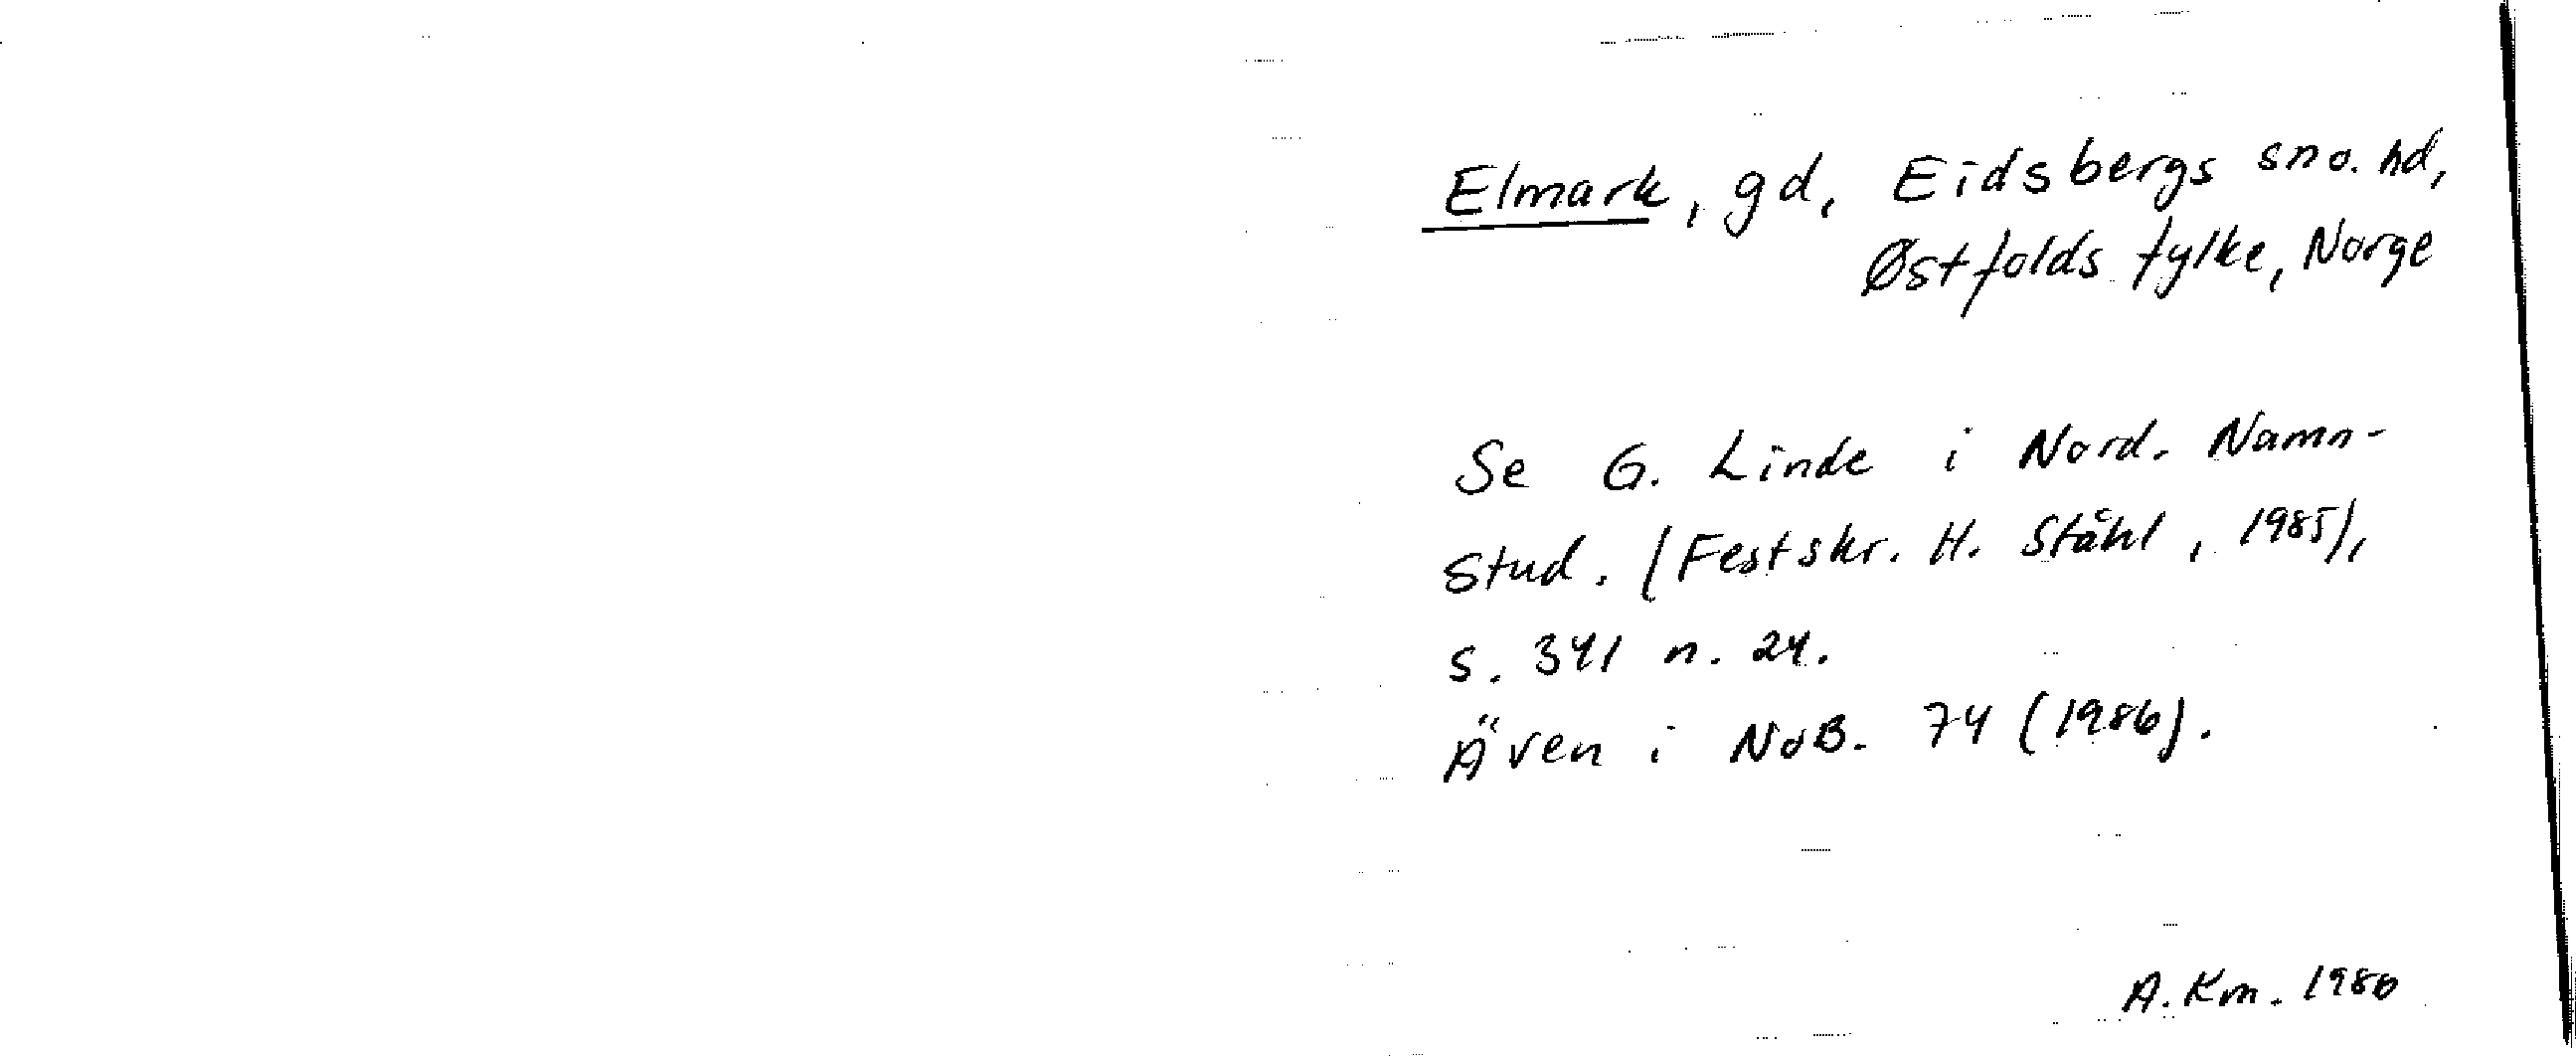 Elmark, gd, Eidsbergs sn o. hd,
Østfolds fylke, Norge
Se G. Linde i Nord. Namn-
stud. (Festskr. H. Ståhl, 1985),
s. 341 n. 24.
Även i NoB. 74 (1986).
A. Km. 1986